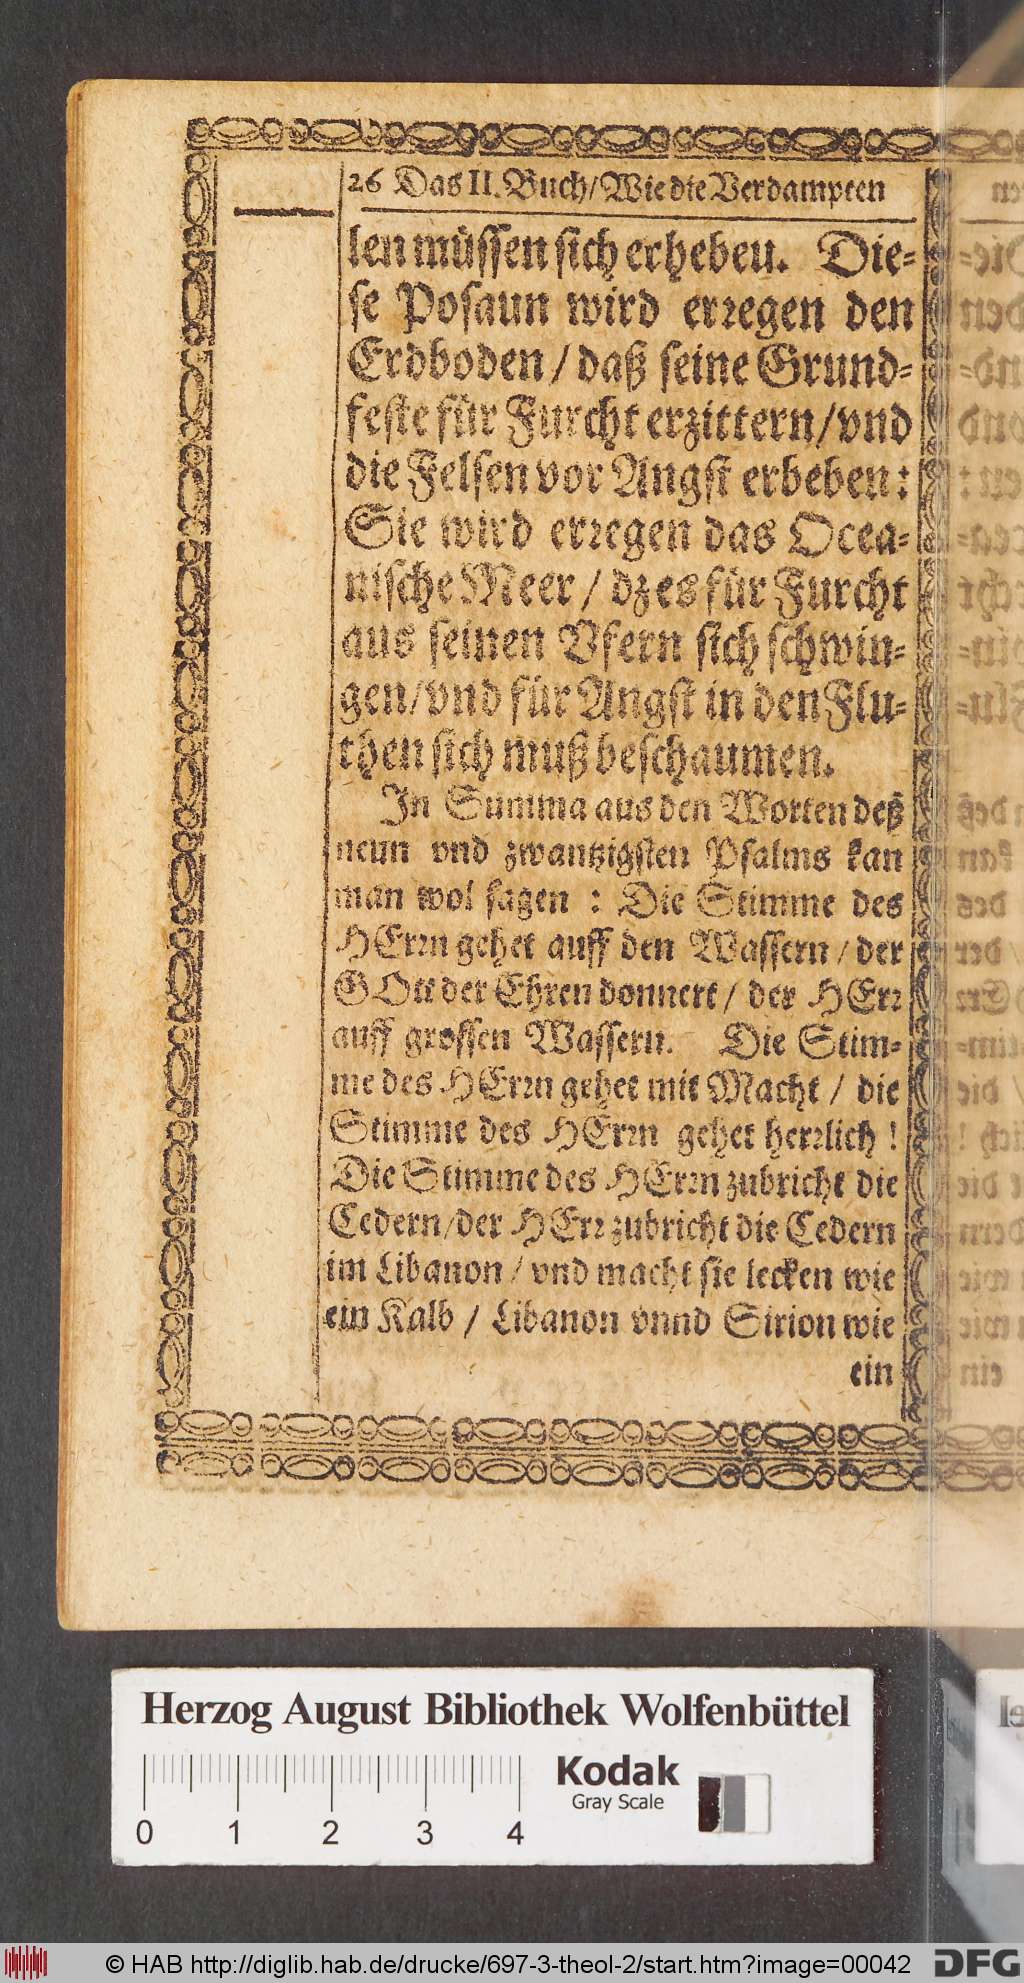 26 Das II. Buch/Wie die Verdampten
len müssen sich erheben. Die-
se Posaun wird erꝛegen den
Erdboden / daß seine Grund-
feste für Furcht erzittern/vnd
die Felsen vor Angst erbeben:
Sie wird erꝛegen das Ocea-
nische Meer / dz es für Furcht
aus seinen Vfern sich schwin-
gen/vnd für Angst in den Flu-
then sich muß beschaumen.
In Summa aus den Worten deß
neun vnd zwantzigsten Psalms kan
man wol sagen : Die Stimme des
HErꝛn gehet auff den Wassern / der
GOtt der Ehren donnert / der HErꝛ
auff grossen Wassern. Die Stim-
me des HErꝛn gehet mit Macht / die
Stimme des HErꝛn gehet herꝛlich !
Die Stimme des HErꝛn zubricht die
Cedern/der HErꝛ zubricht die Cedern
im Libanon / vnd macht sie lecken wie
ein Kalb / Libanon vnnd Sirion wie
ein
Herzog August Bibliothek Wolfenbüttel
Kodak
Gray Scale
0 1 2 3 4
© HAB http://diglib.hab.de/drucke/697-3-theol-2/start.htm?image=00042
DFG